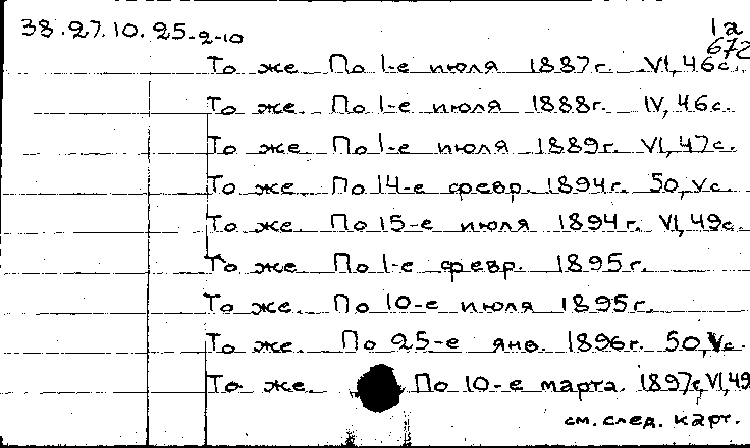 38.27.10.25-2-10 1а
672
То же. По 1-е июля 1887г. VI, 46с.
То же. По 1-е июля 1888г. IV, 46с.
То же. По 1-е июля 1889г. VI, 47с.
То же. По 14-е февр. 1894г. 50, Vс.
То же. По 15-е июля 1894г. VI, 49с.
То же. По 1-е февр. 1895г.
То же. По 10-е июля 1895г.
То же. По 25-е янв. 1896г. 50, Vс.
То же. По 10-е марта. 1897г, VI, 49
см. след. карт.